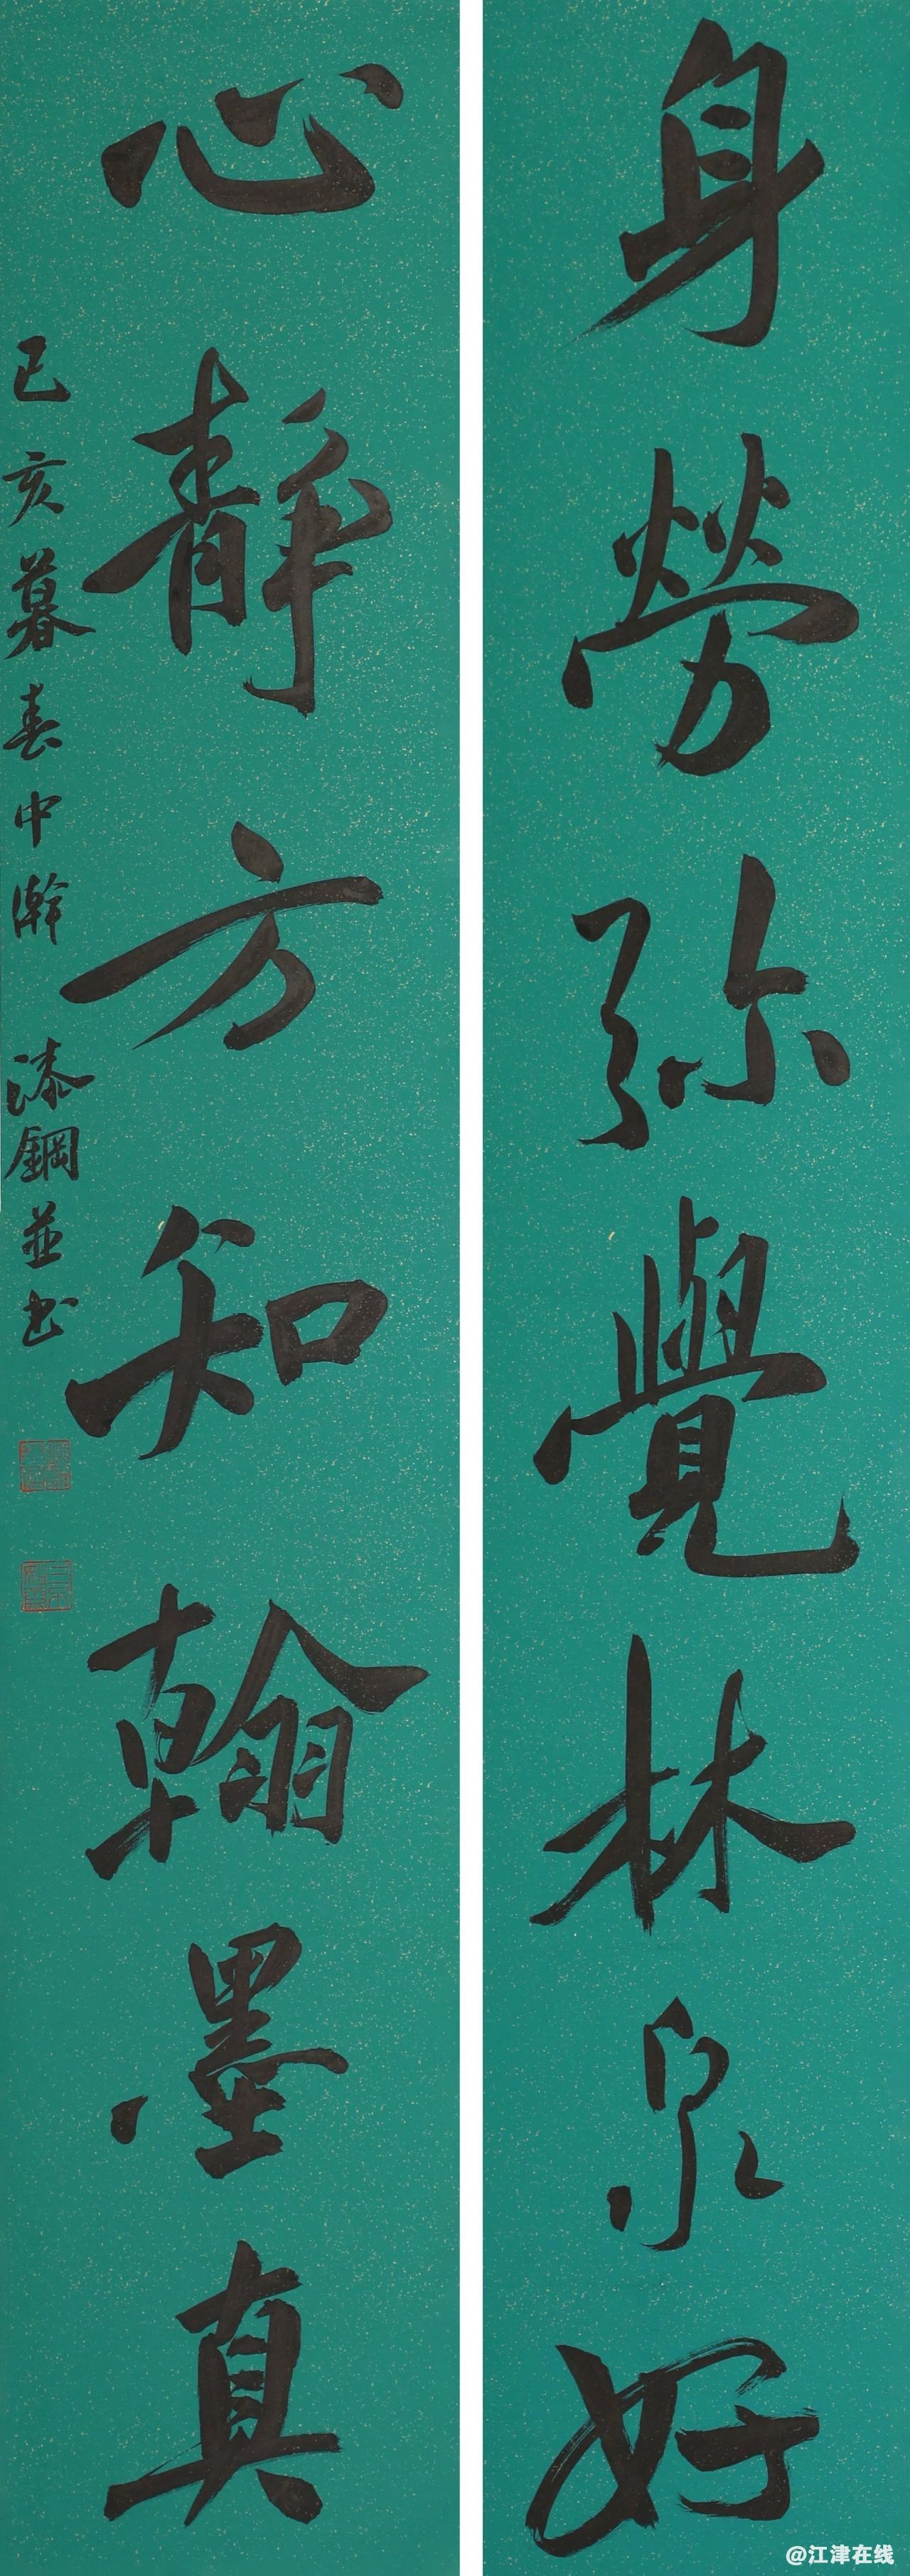 身勞弥覺林泉好
心静方知翰墨真
己亥暮春中澣 漆鋼並书
@江津在线